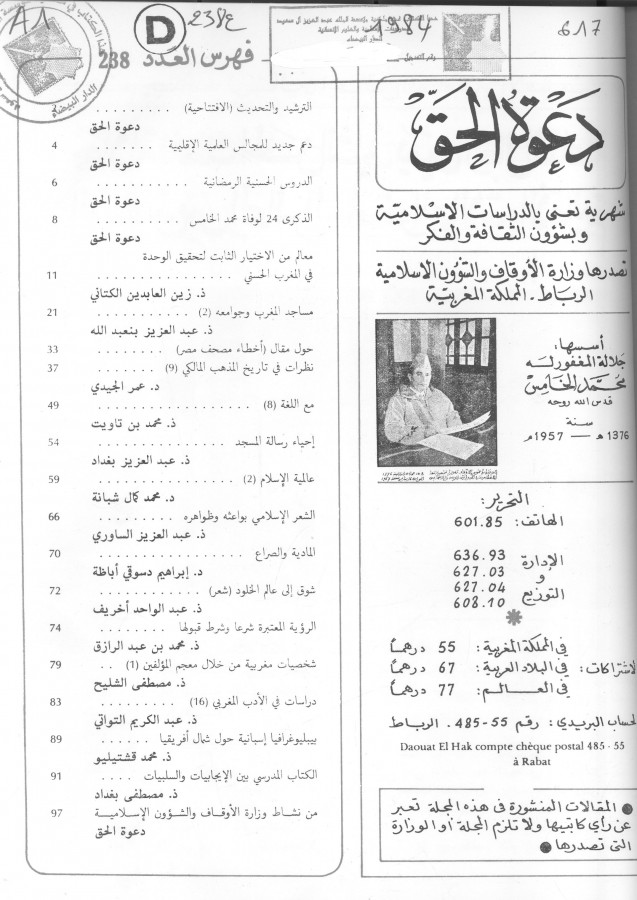 A1
D
238ع
1984
617
هذا الكتاب
الدار البيضاء
دعوة الحق
شهرية تعنى بالدراسات الإسلامية
وبشؤون الثقافة والفكر
تصدرها وزارة الأوقاف والشؤون الإسلامية
الرباط ـ المملكة المغربية
أسسها:
جلالة المغفور له
محمد الخامس
قدس الله روحه
سنة
1376 هـ — 1957 م
التحرير:
الهاتف: 601.85
الإدارة
و
التوزيع
636.93
627.03
627.04
608.10
الاشتراكات:
في المملكة المغربية: 55 درهماً
في البلاد العربية: 67 درهماً
في العالم: 77 درهماً
الحساب البريدي: رقم 55-485. الرباط
Daouat El Hak compte chèque postal 485 - 55
à Rabat
● المقالات المنشورة في هذه المجلة تعبر
عن رأي كاتبيها ولا تلزم المجلة أو الوزارة
التي تصدرها ●
فهرس العدد 238
الترشيد والتحديث (الافتتاحية) . . . . . . . . . 2
دعوة الحق
دعم جديد للمجالس العلمية الإقليمية . . . . . . . 4
دعوة الحق
الدروس الحسنية الرمضانية . . . . . . . . . . . 6
دعوة الحق
الذكرى 24 لوفاة محمد الخامس . . . . . . . . . 8
دعوة الحق
معالم من الاختيار الثابت لتحقيق الوحدة
في المغرب الحسني . . . . . . . . . . . . . . 11
ذ. زين العابدين الكتاني
مساجد المغرب وجوامعه (2) . . . . . . . . . . . 21
ذ. عبد العزيز بنعبد الله
حول مقال (أخطاء مصحف مصر) . . . . . . . . . 33
نظرات في تاريخ المذهب المالكي (9) . . . . . . . 37
د. عمر الجيدي
مع اللغة (8) . . . . . . . . . . . . . . . . 49
ذ. محمد بن تاويت
إحياء رسالة المسجد . . . . . . . . . . . . . 54
ذ. عبد العزيز بغداد
عالمية الإسلام (2) . . . . . . . . . . . . . . 59
د. محمد كمال شبانة
الشعر الإسلامي بواعثه وظواهره . . . . . . . . . 66
ذ. عبد العزيز الساوري
المادية والصراع . . . . . . . . . . . . . . . 70
د. إبراهيم دسوقي أباظة
شوق إلى عالم الخلود (شعر) . . . . . . . . . . . 72
ذ. عبد الواحد أخريف
الرؤية المعتبرة شرعا وشرط قبولها . . . . . . . . 74
ذ. محمد بن عبد الرازق
شخصيات مغربية من خلال معجم المؤلفين (1) . . 79
ذ. مصطفى الشليح
دراسات في الأدب المغربي (16) . . . . . . . . . 83
ذ. عبد الكريم التواتي
بيبليوغرافيا إسبانية حول شمال أفريقيا . . . . . . 89
ذ. محمد قشتيليو
الكتاب المدرسي بين الإيجابيات والسلبيات . . . . 91
ذ. مصطفى بغداد
من نشاط وزارة الأوقاف والشؤون الإسلامية 97
دعوة الحق